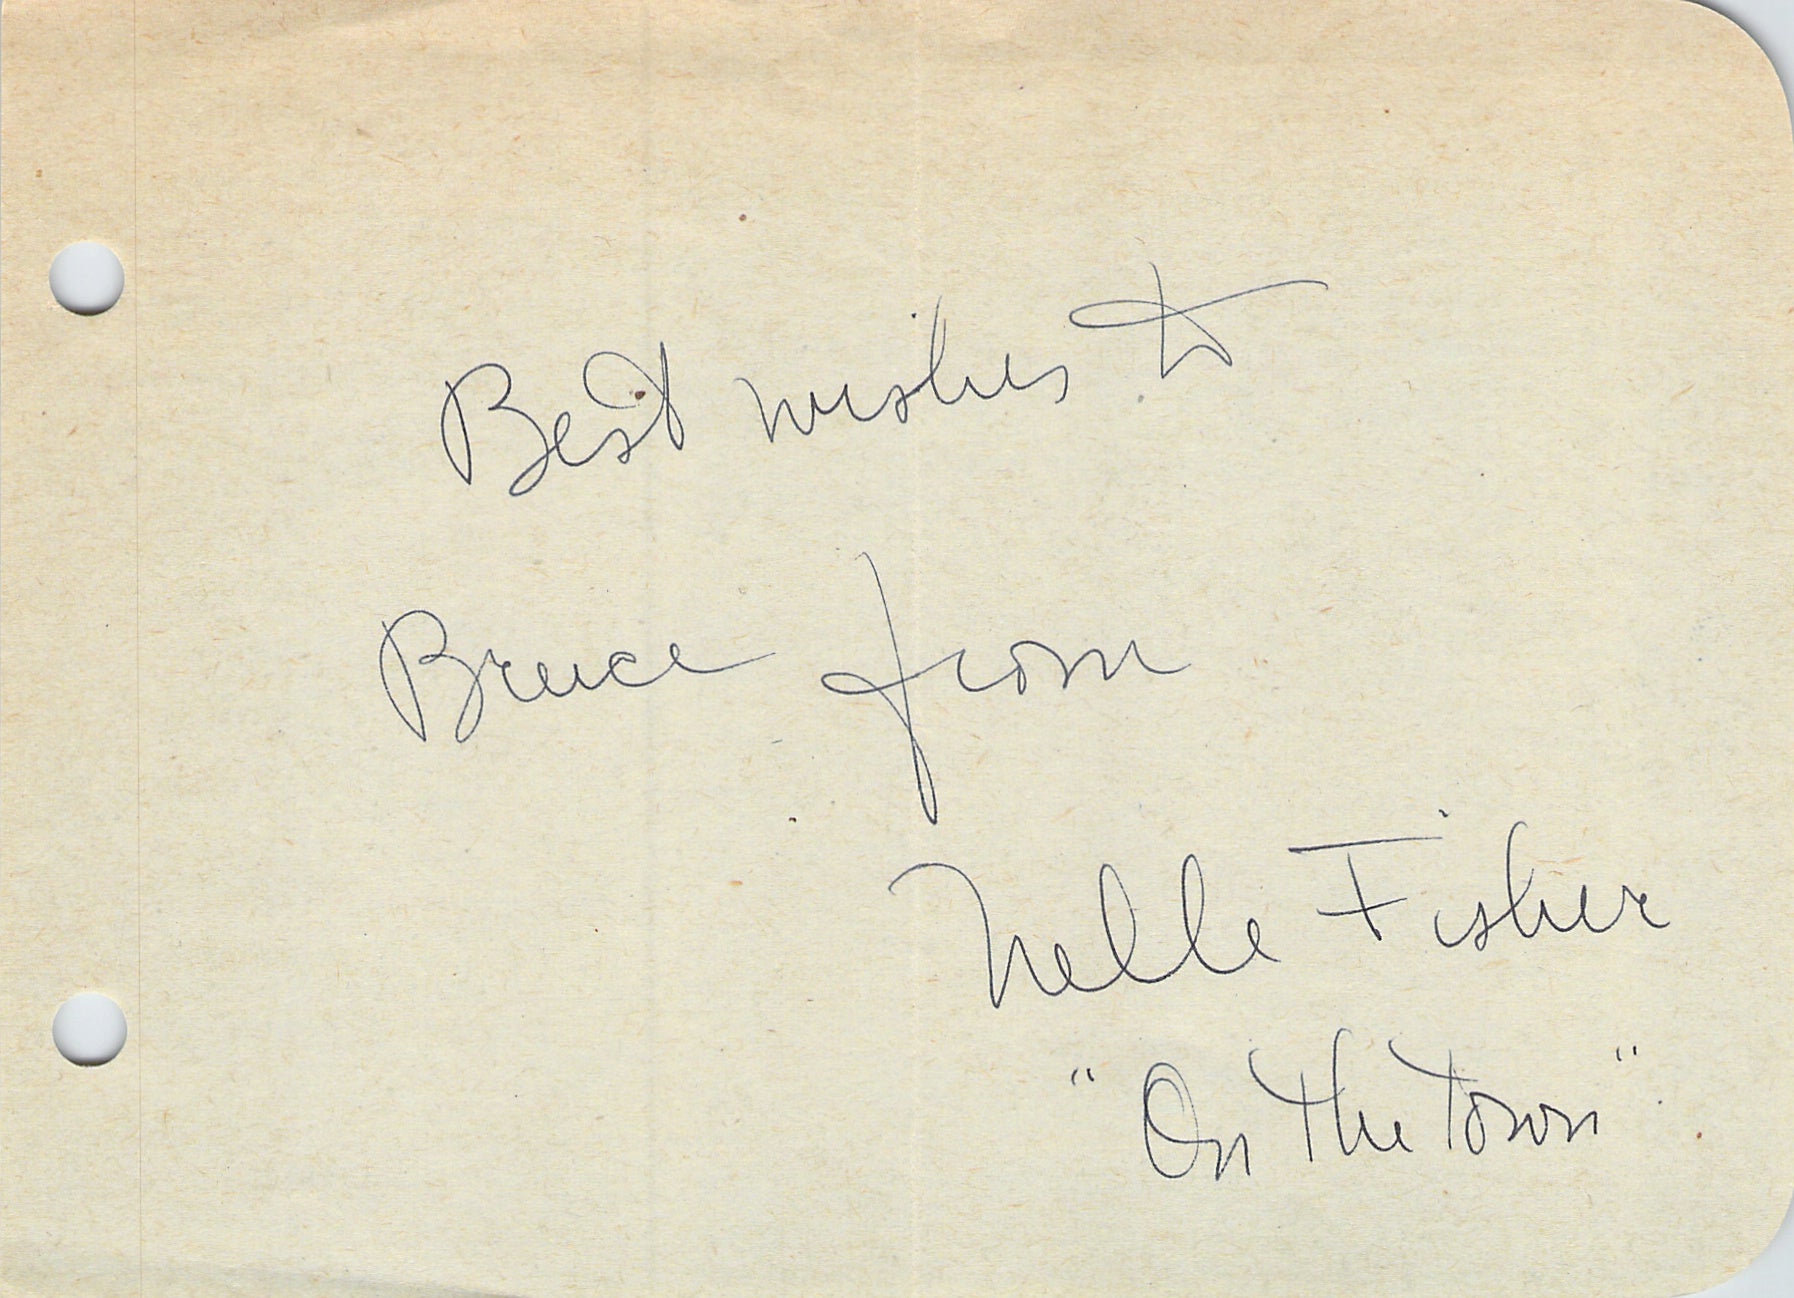 Best wishes to
Bruce from
Nelle Fisher
"On The Town"